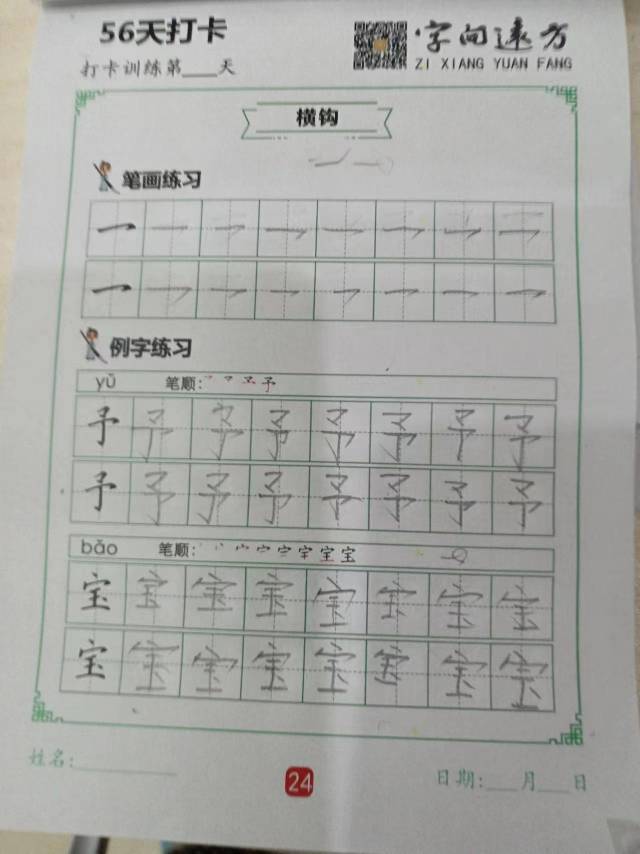 56天打卡
字向远方
打卡训练第___天
ZI XIANG YUAN FANG
横钩
笔画练习
例字练习
yǔ 笔顺:
予 予 予 予 予 予 予 予
予 予 予 予 予 予 予 予
bǎo 笔顺:
宝 宝 宝 宝 宝 宝 宝 宝
宝 宝 宝 宝 宝 宝 宝 宝
姓名:
24
日期:___月___日